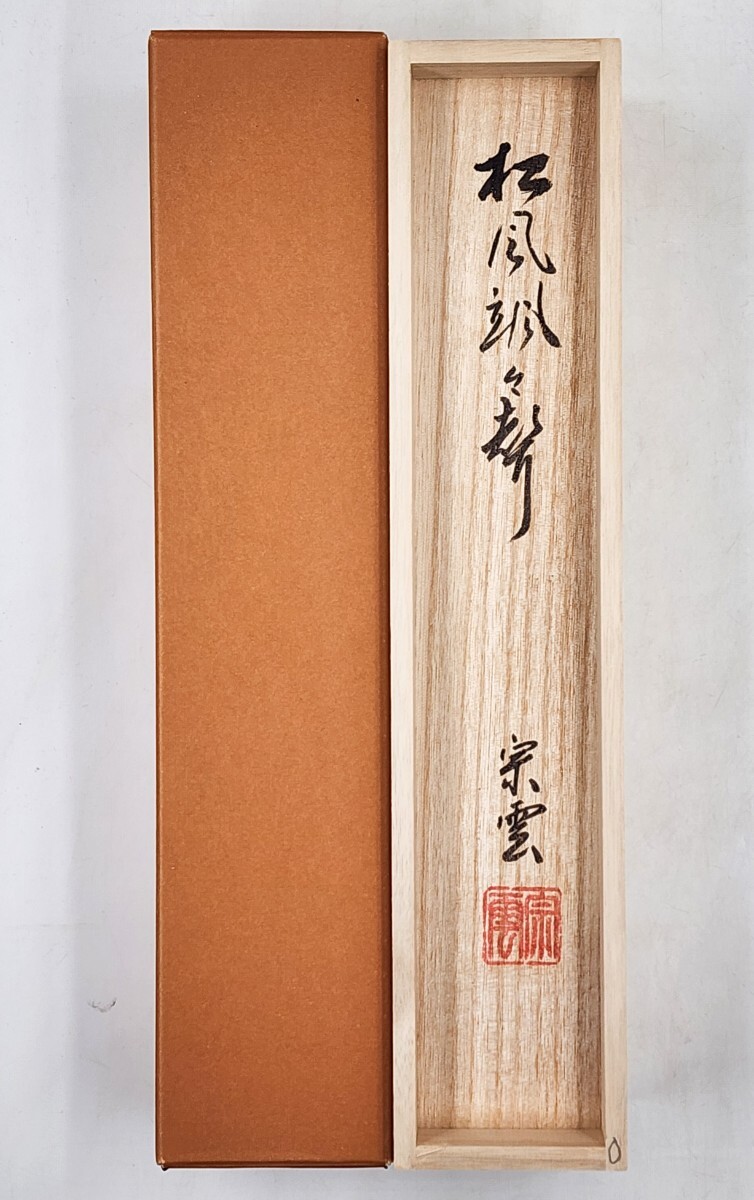 松風颯々聲
宗雲
宗雲